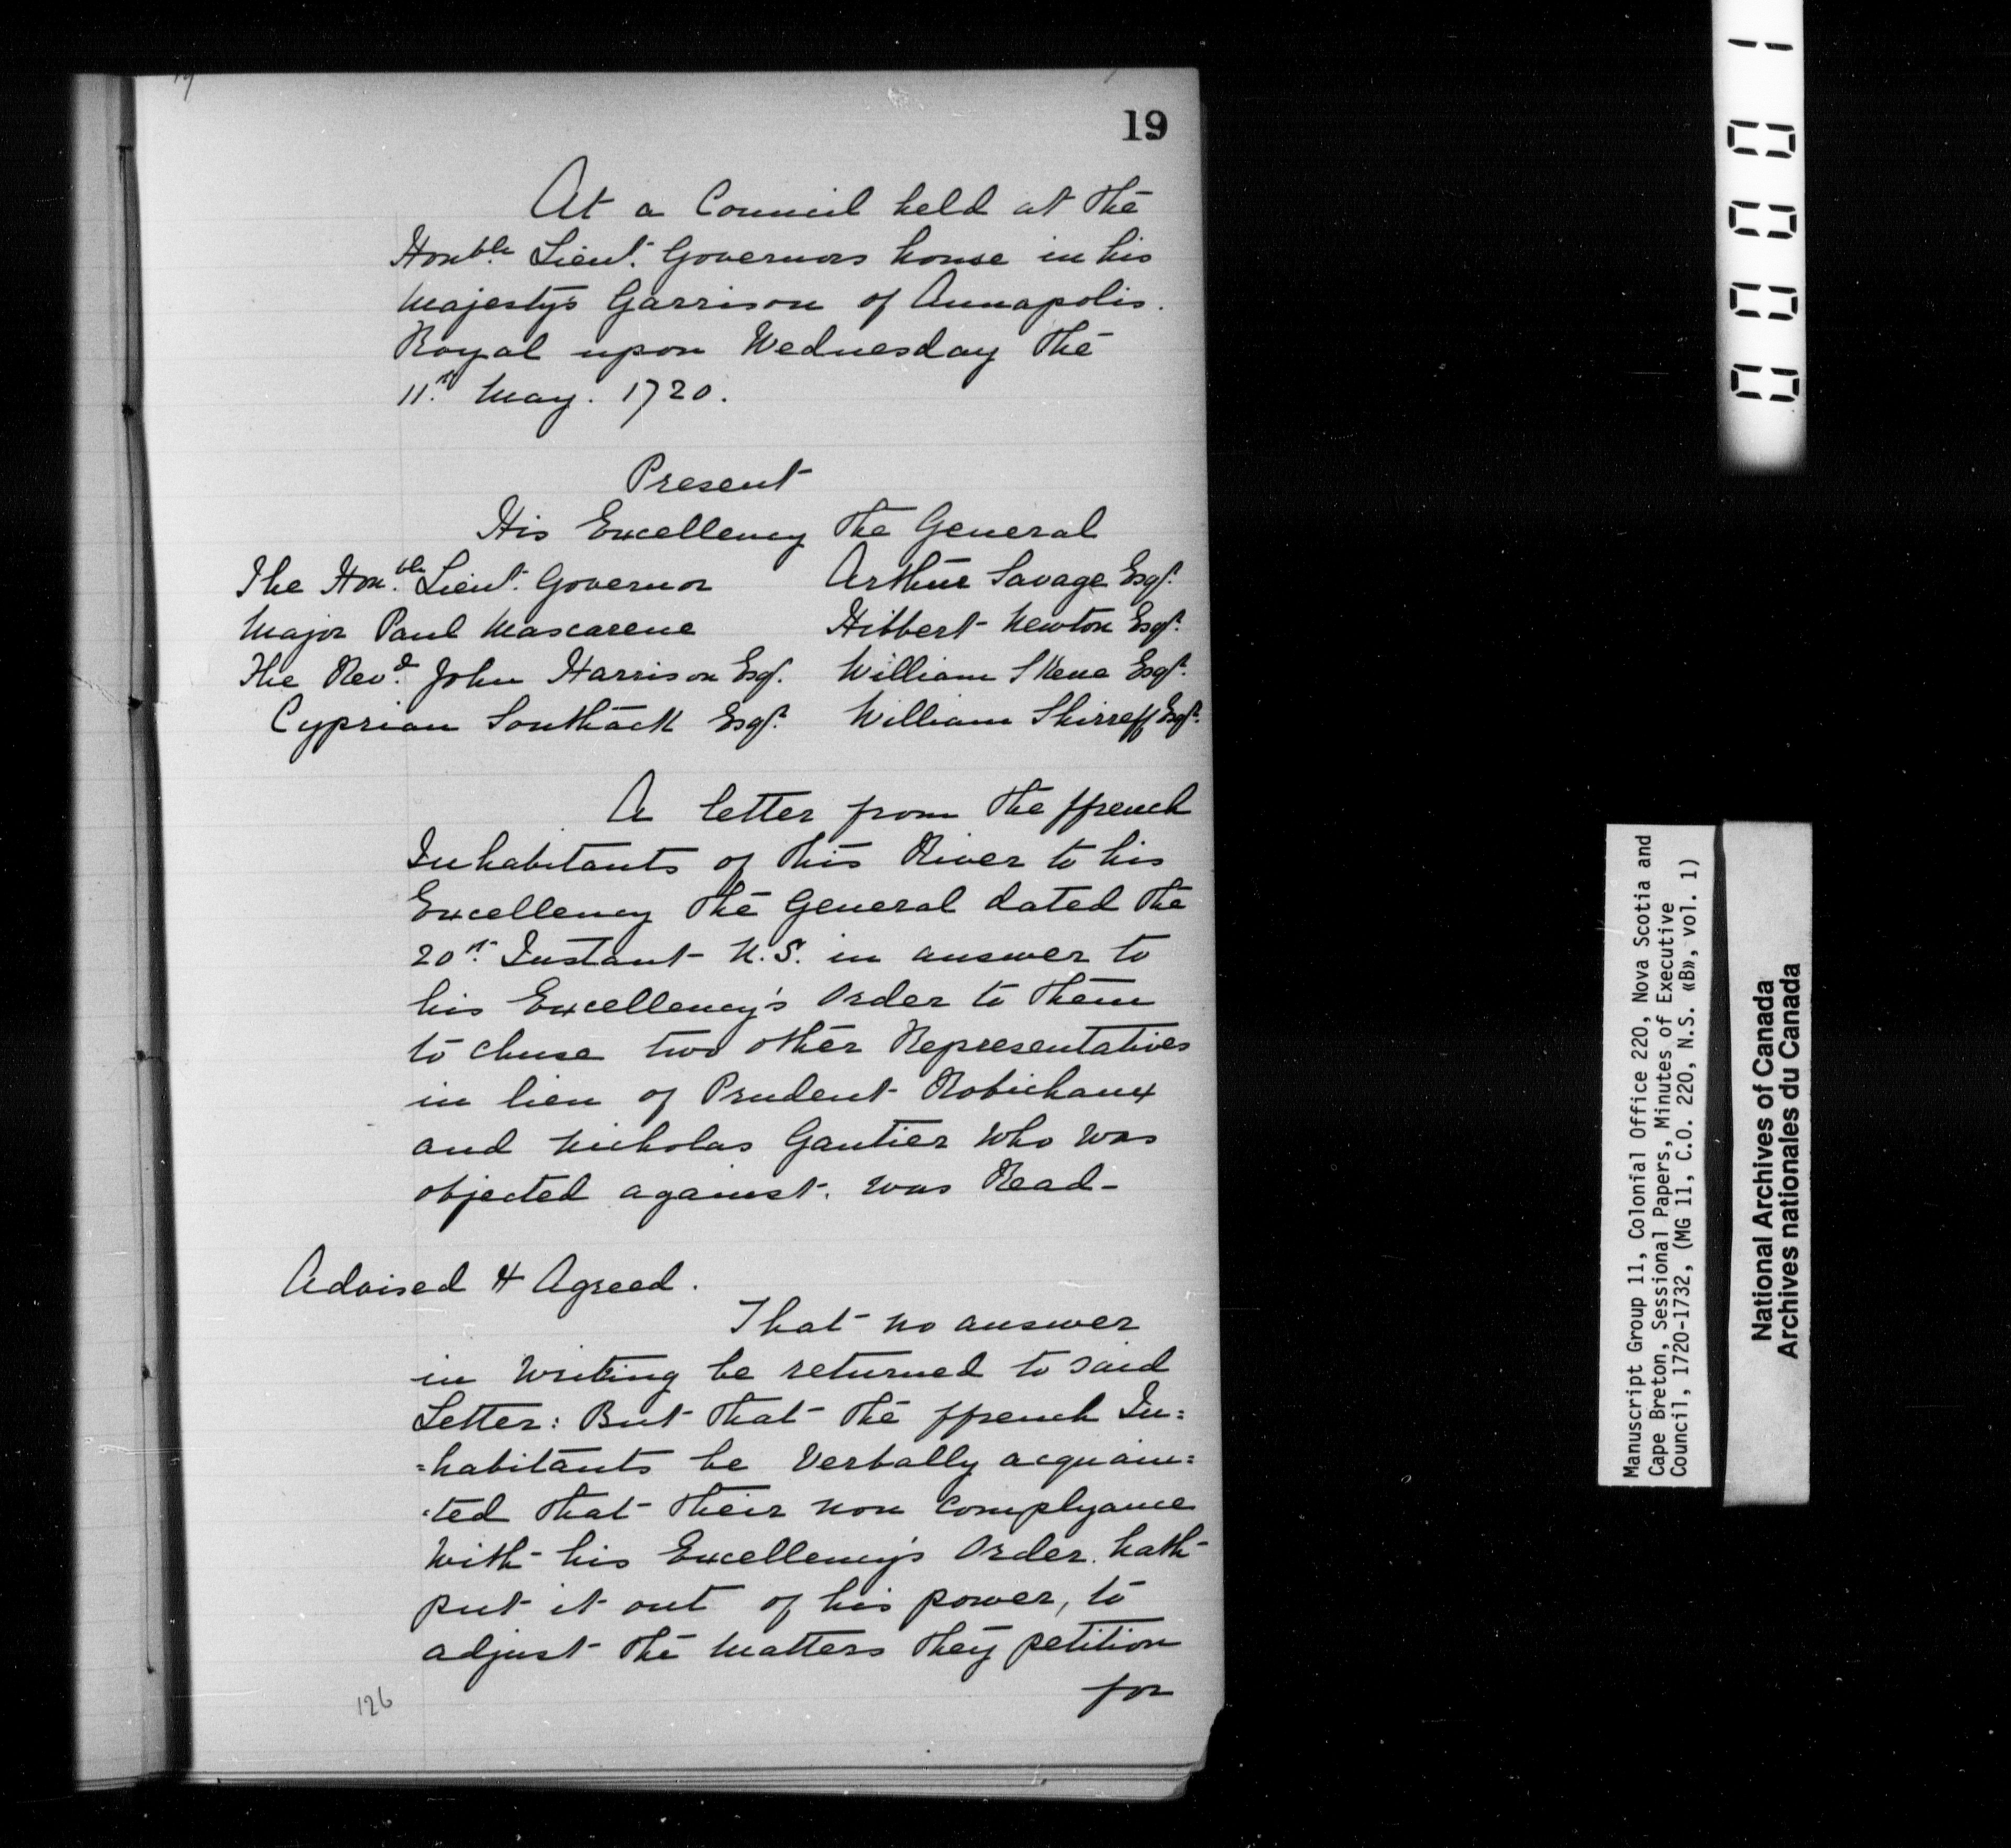 19
At a Council held at the
Honble. Lieut. Governors house in his
Majesty's Garrison of Annapolis.
Royal upon Wednesday the
11th. May. 1720.
Present
His Excellency the General
The Honble. Lieut. Governor Arthur Savage Esqr.
Major Paul Mascarene Hibbert Newton Esqr.
The Revd. John Harrison Esqr. William Skene Esqr.
Cyprian Southack Esqr. William Shirreff Esqr.
A letter from the ffrench
Inhabitants of this River to his
Excellency the General dated the
20th. Instant N.S. in answer to
his Excellency's Order to them
to chuse two other Representatives
in lieu of Prudent Robichaux
and Nicholas Gautier who was
objected against. was Read-
Advised & Agreed.
That no answer
in writing be returned to said
Letter: But that the ffrench In=
=habitants be Verbally acquain=
=ted that their non complyance
with his Excellency's Order. hath
put it out of his power, to
adjust the matters they petition
for
126
00001
Manuscript Group 11, Colonial Office 220, Nova Scotia and
Cape Breton, Sessional Papers, Minutes of Executive
Council, 1720-1732, (MG 11, C.O. 220, N.S. «B», vol. 1)
National Archives of Canada
Archives nationales du Canada